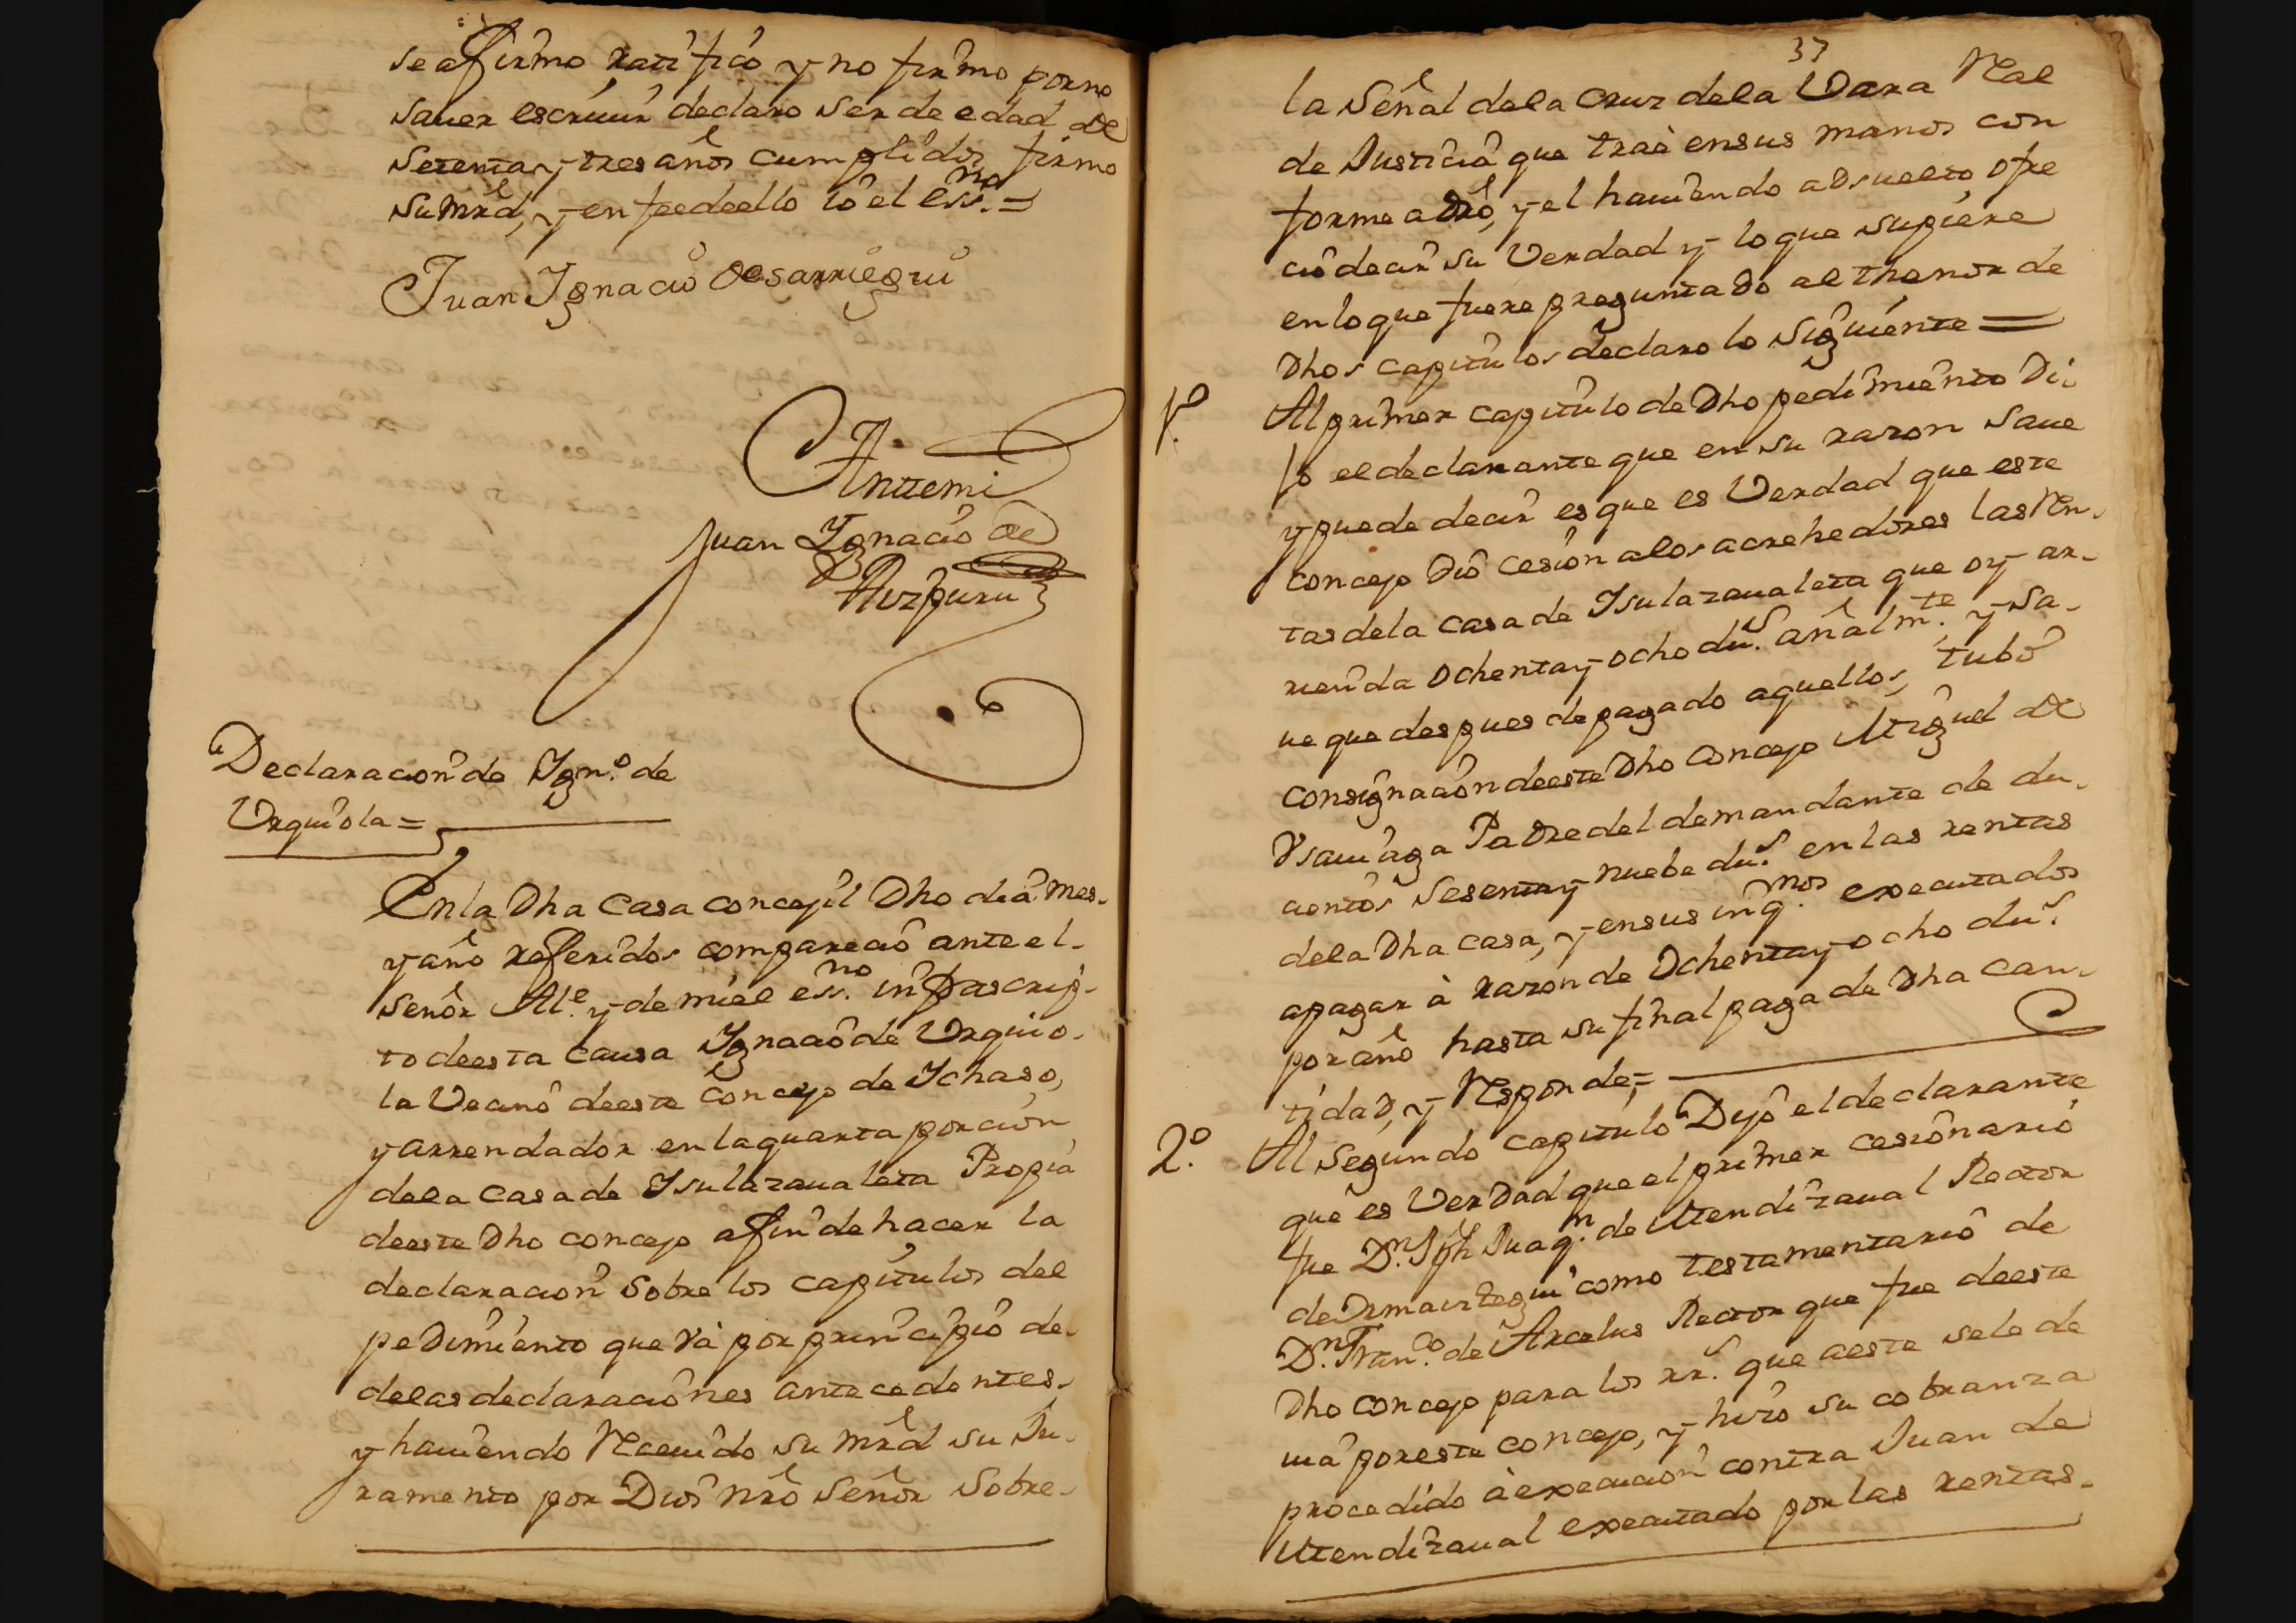 se afirmo ratifico y no firmo por no
sauer escriuir declaro ser de edad de
setenta y tres años cumplidos firmo
su mrd, y en fee de ello io el essno. =
Juan Ignacio de sarriegui
Anttemi
Juan Ygnacio de
Aizpuru
Declaracion de Ign.o de
Vrquiola =
En la Dha Casa concejil Dho dia mes
y año referidos comparecio ante el
señor Al.e y de mi el essno. infrascrip-
to de esta causa Ignacio de Vrquio-
la Vecino de este concejo de Ichaso,
y arrendador en la quarta porcion
de la Casa de Isulazaualeta Propia
de este Dho concejo a fin de hacer la
declaracion sobre los capitulos del
pedimiento que va por principio de
las declaraciones antecedentes
y hauiendo Receuido su mrd su Ju-
ramento por Dios nro señor sobre
37
la señal de la Cruz de la Vara Real
de Justicia que trae en sus manos con
forme a dro, y el hauiendo absuelto ofre
cio decir su Verdad y lo que supiere
en lo que fuere preguntado al thenor de
Dhos capitulos declaro lo siguiente =
1.o Al primer capitulo de Dho pedimiento Di-
jo el declarante que en su razon saue
y puede decir es que es Verdad que este
concejo dio cesion a los acrehedores las Ren-
tas de la casa de Isulazaualeta que oy ar-
rienda ochenta y ocho dus. añalm.te y sa-
ue que despues de pagado aquellos, tubo
consignacion de este Dho concejo Miguel de
Vsauiaga Padre del demandante de du-
cientos sesenta y nuebe dus. en las rentas
de la Dha casa, y en sus inq.nos executados
a pagar à razon de ochenta y ocho dus.
por año hasta su final paga de Dha can-
tidad, y Responde =
2.o Al segundo capitulo Dijo el declarante
que es Verdad que el primer cesionario
fue D.n Jph Juaq.n de Mendizaual Rector
de Ormaiztegui como testamentario de
D.n Fran.co de Arcelus Rector que fue de este
Dho concejo para los rrs. que a este se le de
uia por este concejo, y hizo su cobranza
procedido à execucion contra Juan de
Mendizaual executado por las rentas